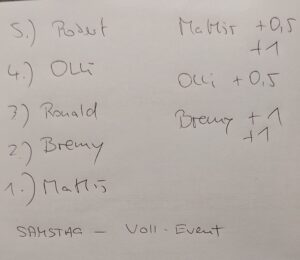 5.) Robert Mathis +0,5
+1
4.) Olli Olli +0,5
3) Ronald Bremy +1
+1
2.) Bremy
1.) Mathis
SAMSTAG – Voll-Event